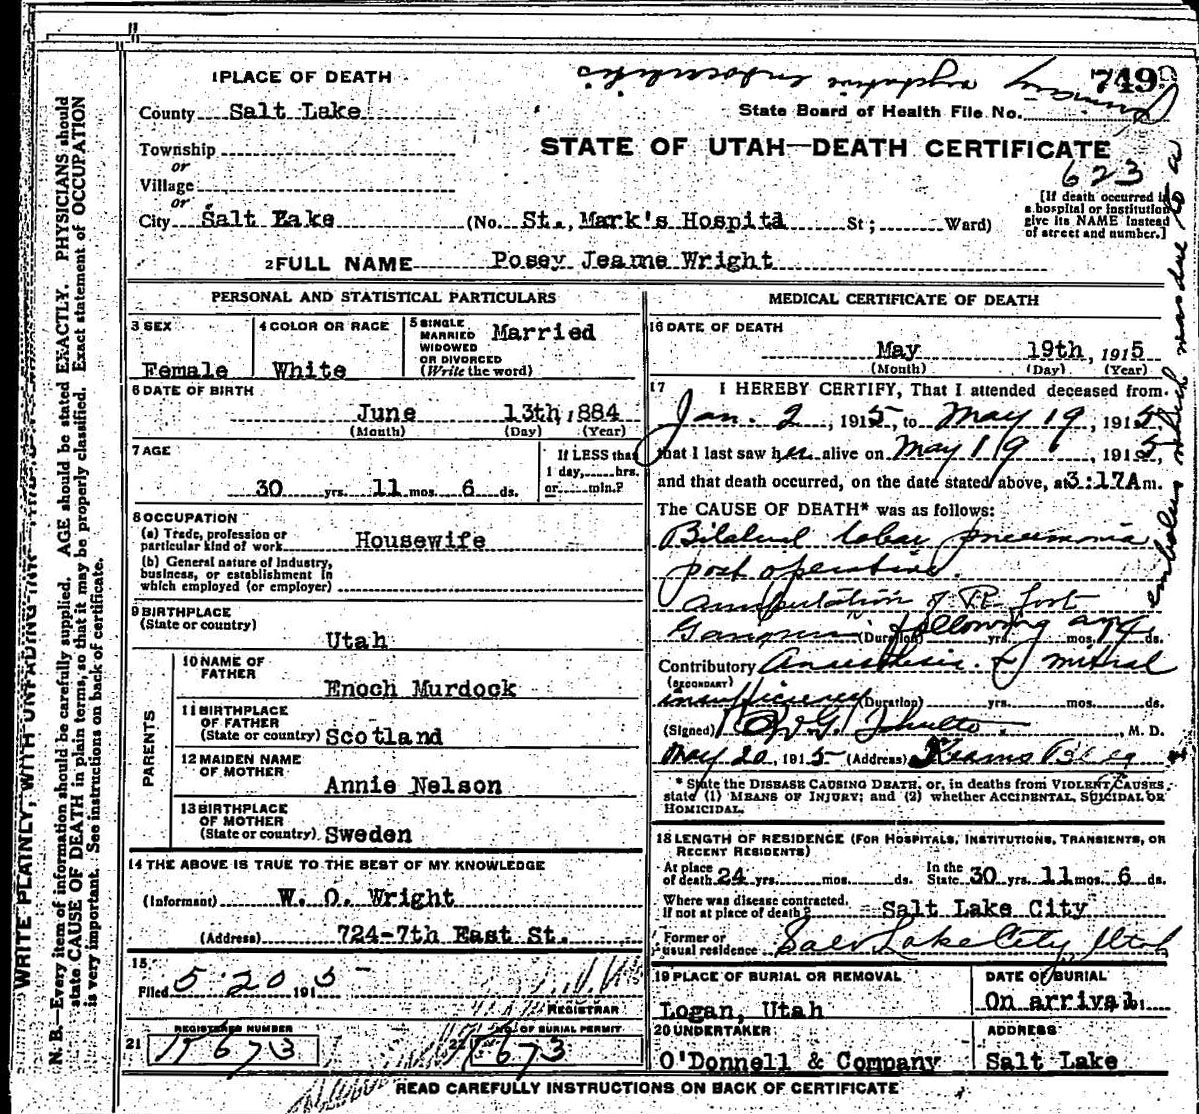 1 PLACE OF DEATH
749
County Salt Lake
State Board of Health File No.
Township
STATE OF UTAH—DEATH CERTIFICATE
or
623
Village
or
[If death occurred in a hospital or institution give its NAME instead of street and number.]
City Salt Lake (No. St., Mark's Hospital St; Ward)
2 FULL NAME Posey Jeanne Wright
PERSONAL AND STATISTICAL PARTICULARS
3 SEX
Female
4 COLOR OR RACE
White
5 SINGLE
MARRIED
WIDOWED
OR DIVORCED
(Write the word)
Married
6 DATE OF BIRTH
June 13th, 1884
(Month) (Day) (Year)
7 AGE
30 yrs. 11 mos. 6 ds.
If LESS than
1 day, hrs.
or min.?
8 OCCUPATION
(a) Trade, profession or
particular kind of work Housewife
(b) General nature of industry,
business, or establishment in
which employed (or employer)
9 BIRTHPLACE
(State or country)
Utah
PARENTS
10 NAME OF
FATHER
Enoch Murdock
11 BIRTHPLACE
OF FATHER
(State or country) Scotland
12 MAIDEN NAME
OF MOTHER
Annie Nelson
13 BIRTHPLACE
OF MOTHER
(State or country) Sweden
14 THE ABOVE IS TRUE TO THE BEST OF MY KNOWLEDGE
(Informant) W. O. Wright
(Address) 724-7th East St.
15
Filed 5 20 1915
REGISTRAR
REGISTERED NUMBER
21
NO. OF BURIAL PERMIT
22
MEDICAL CERTIFICATE OF DEATH
16 DATE OF DEATH
May 19th, 1915
(Month) (Day) (Year)
17 I HEREBY CERTIFY, That I attended deceased from
Jan. 2, 1915, to May 19, 1915,
that I last saw her alive on May 19, 1915,
and that death occurred, on the date stated above, at 3:17A m.
The CAUSE OF DEATH* was as follows:
Bilateral lobar pneumonia
post operative.
Amputation of Rt. foot
(Duration) following yrs. mos. ds.
Contributory Anaesthesia. & mitral
(SECONDARY)
insufficiency (Duration) yrs. mos. ds.
(Signed) M. D.
May 20, 1915 (Address) Kearns Bldg
* State the DISEASE CAUSING DEATH, or, in deaths from VIOLENT CAUSES,
state (1) MEANS OF INJURY; and (2) whether ACCIDENTAL, SUICIDAL OR
HOMICIDAL.
18 LENGTH OF RESIDENCE (FOR HOSPITALS, INSTITUTIONS, TRANSIENTS, OR
RECENT RESIDENTS)
At place
of death 24 yrs. mos. ds. In the
State 30 yrs. 11 mos. 6 ds.
Where was disease contracted,
If not at place of death? Salt Lake City
Former or
usual residence Salt Lake City, Utah
19 PLACE OF BURIAL OR REMOVAL
Logan, Utah
DATE OF BURIAL
On arrival
20 UNDERTAKER
O'Donnell & Company
ADDRESS
Salt Lake
READ CAREFULLY INSTRUCTIONS ON BACK OF CERTIFICATE
embolus which was due to a
WRITE PLAINLY, WITH UNFADING INK
N. B.—Every item of information should be carefully supplied. AGE should be stated EXACTLY. PHYSICIANS should
state CAUSE OF DEATH in plain terms, so that it may be properly classified. Exact statement of OCCUPATION
is very important. See instructions on back of certificate.